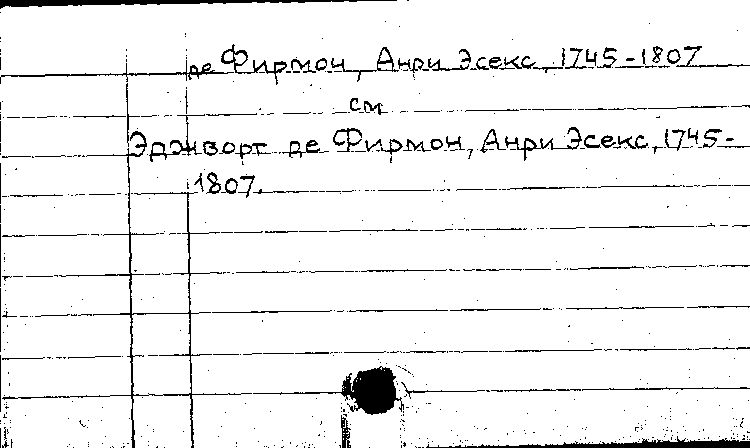 де Фирмон, Анри Эсекс, 1745-1807
см
Эджворт де Фирмон, Анри Эсекс, 1745-
1807.